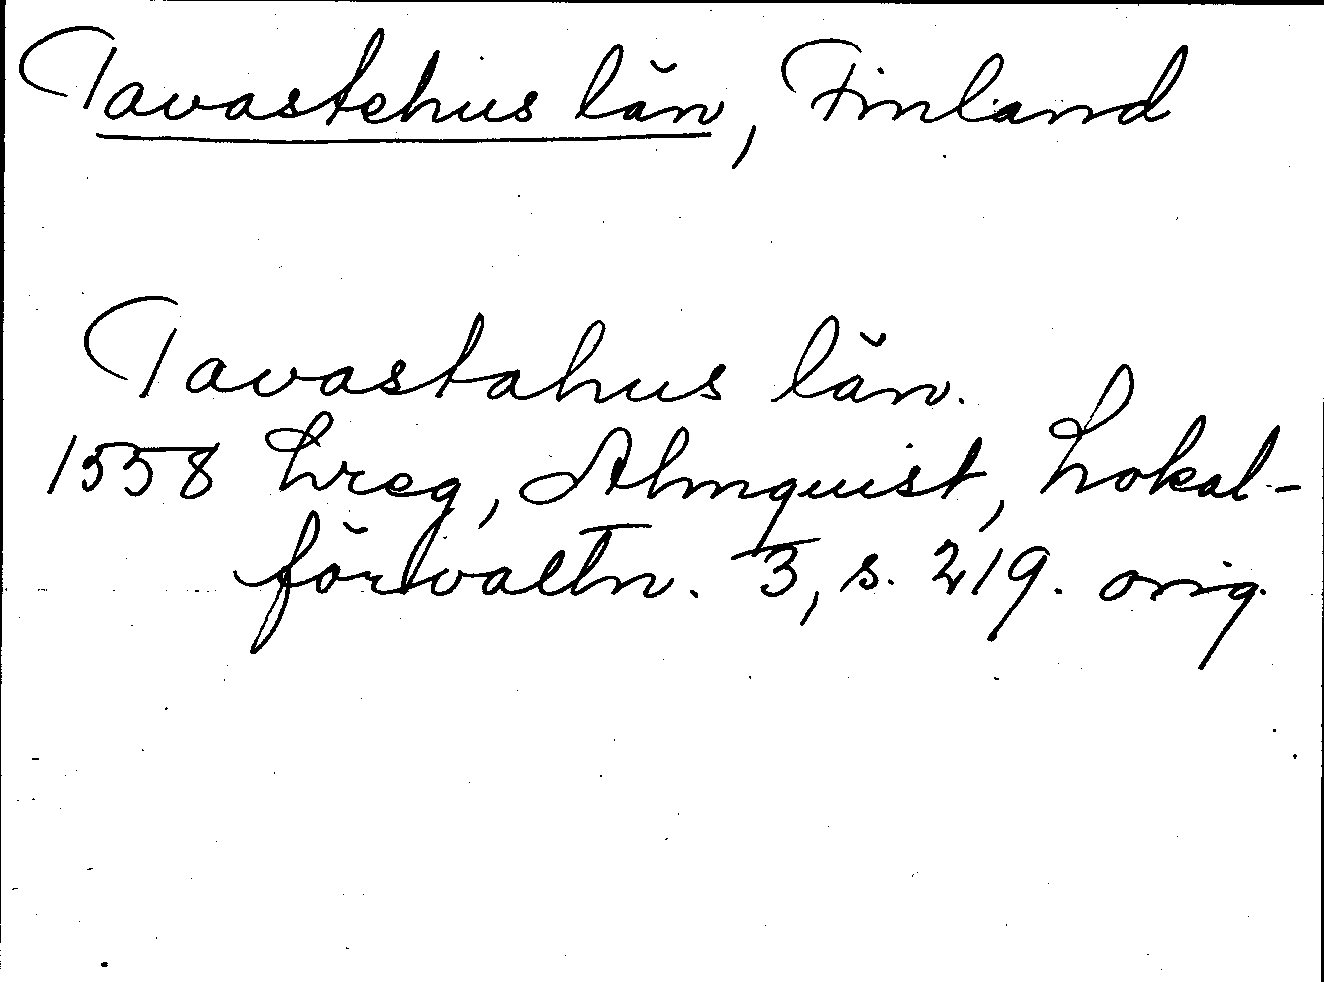 Tavastehus län, Finland
Tavastahus län.
1558 Lreg, Almquist, Lokal-
förvaltn. 3, s. 219. orig.